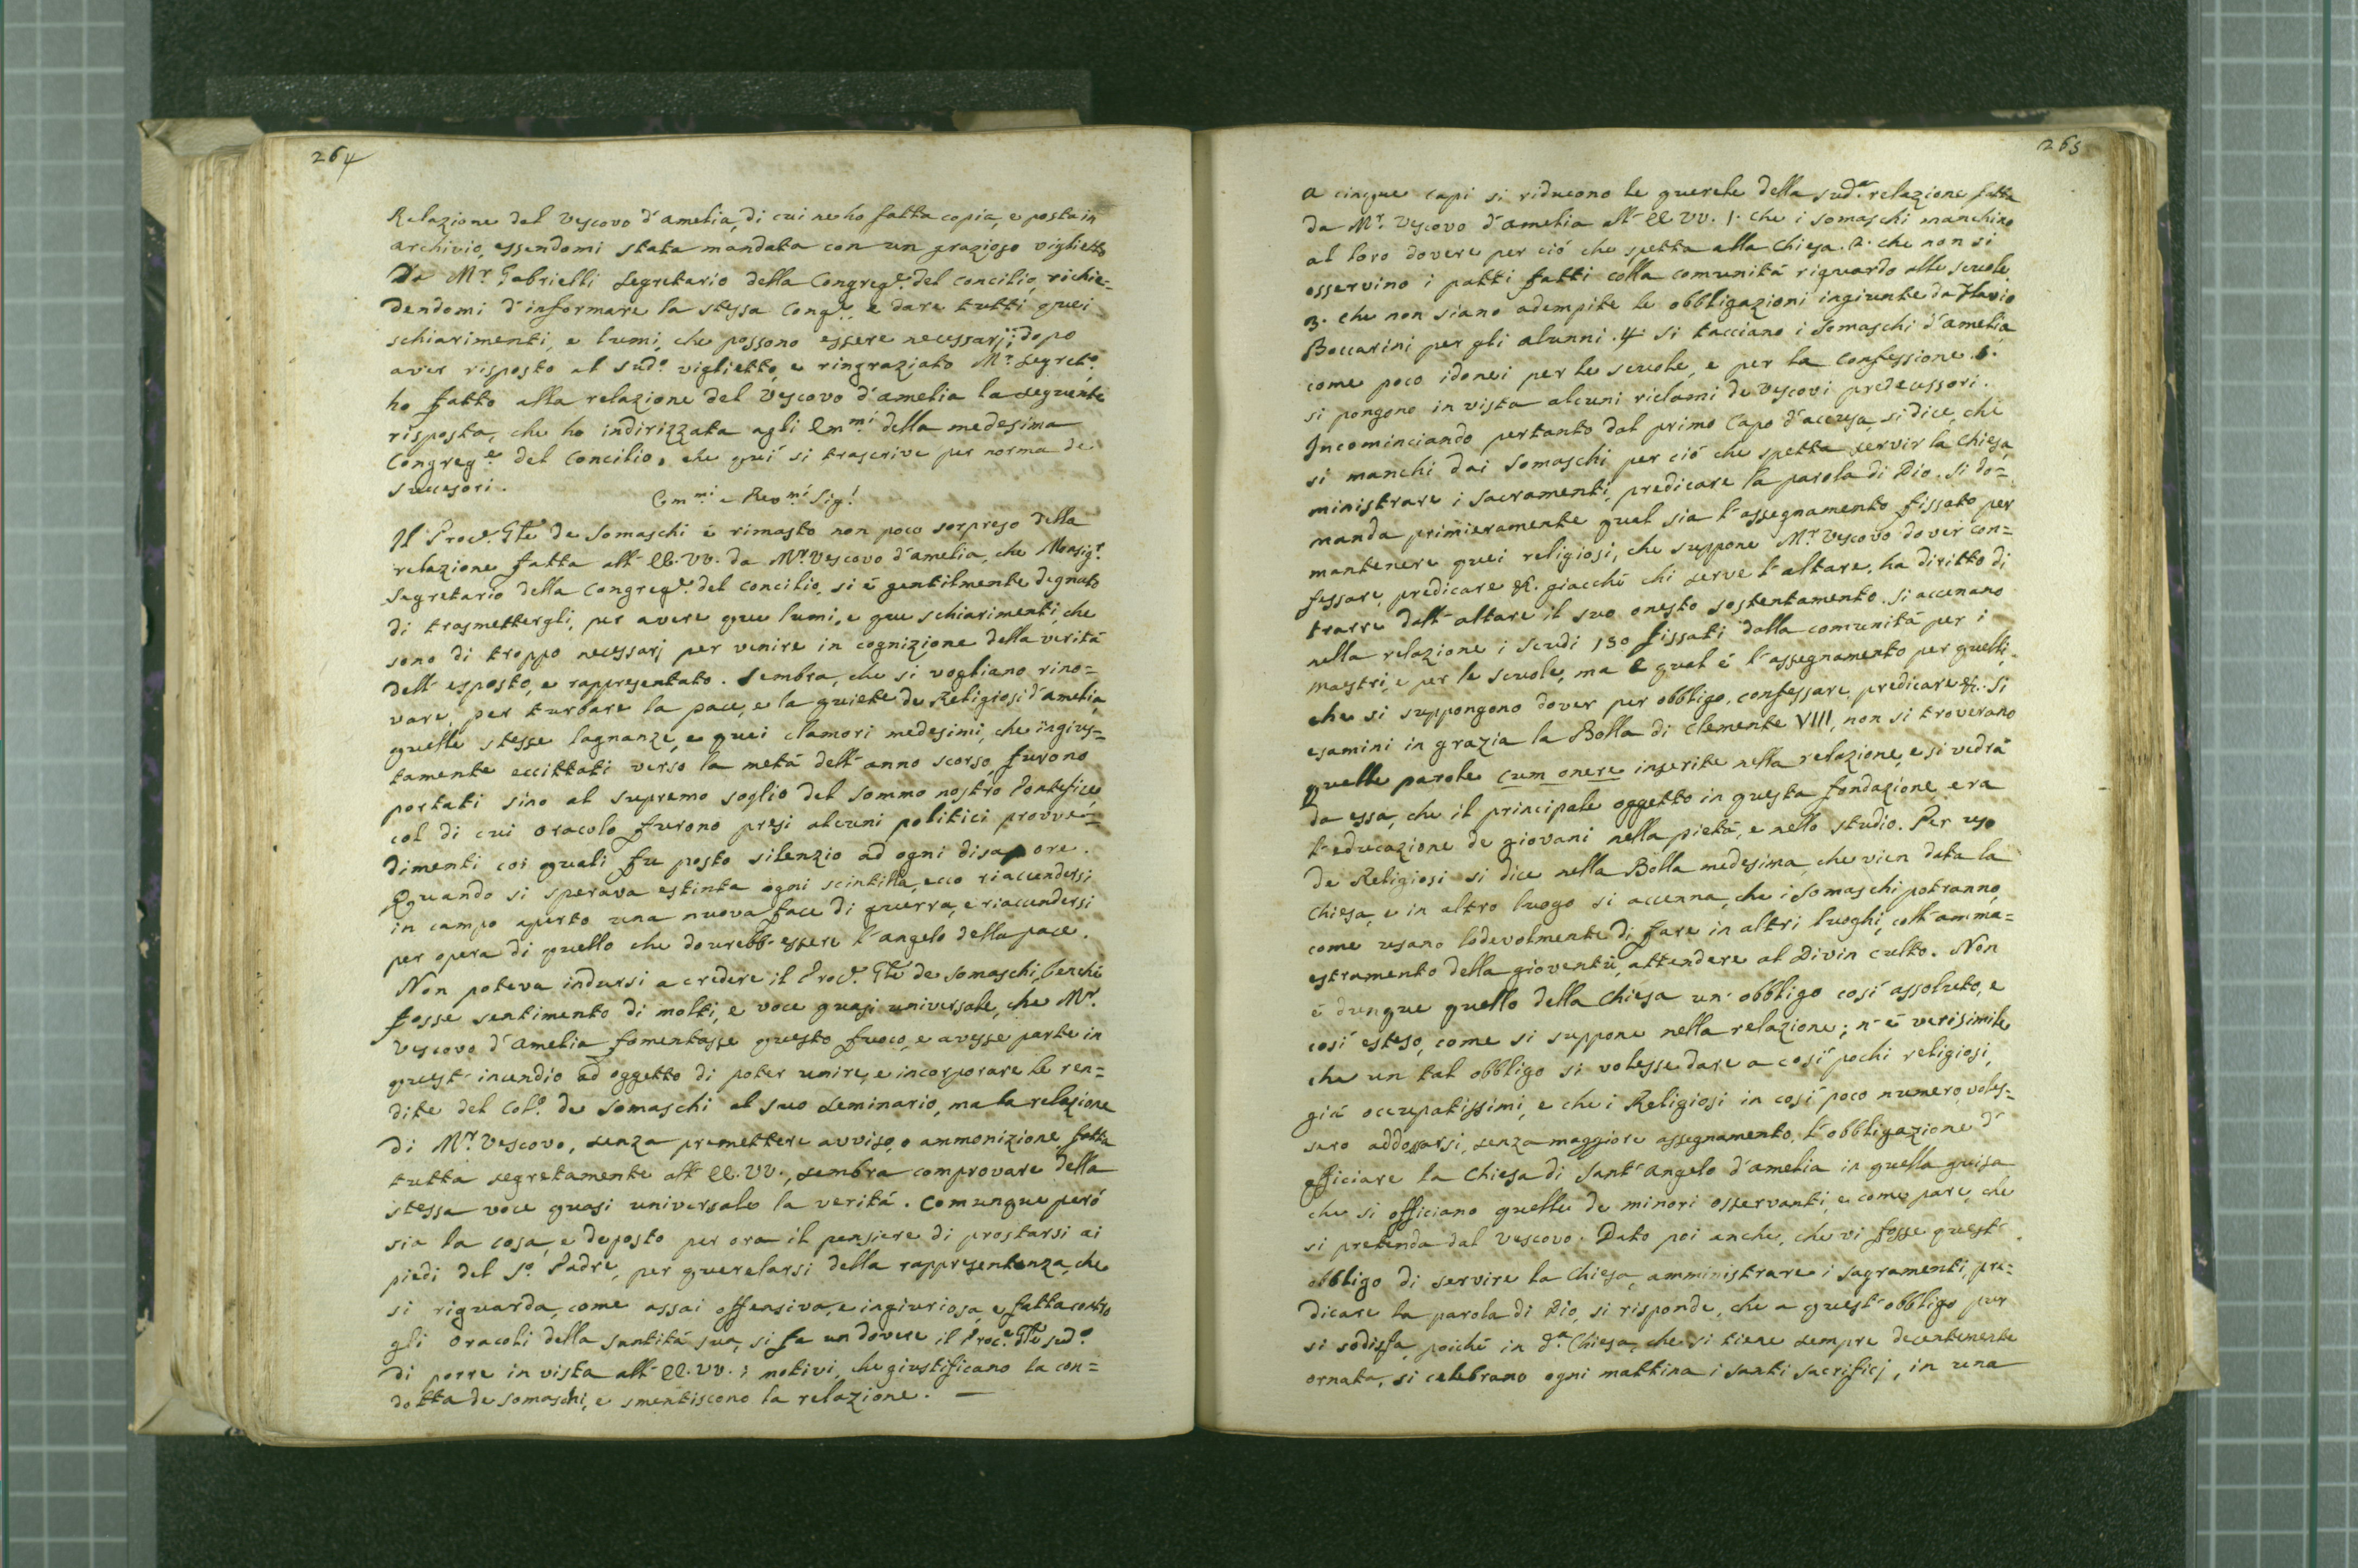 264
Relazione del Vescovo d'amelia, di cui ne ho fatta copia, e posta in
archivio, essendomi stata mandata con un grazioso viglietto
Da Mr. Gabrielli Segretario della Congrege. del Concilio, richie=
dendomi d'informare la stessa Conge., e dare tutti quei
schiarimenti, e lumi, che possono essere necessarj; dopo
aver risposto al sudo. viglietto, e ringraziato Mr. Segreto.
ho fatto alla relazione del Vescovo d'amelia la seguente
risposta, che ho indirizzata agli Emmi. della medesima
Congrege. del Concilio, che quí si trascrive per norma de
Successori.
Emmi e Revmi Sigi.
Il Proce. Gle de Somaschi é rimasto non poco sorpreso della
relazione fatta all' EE. VV. da Mr. Vescovo d'amelia, che Monsigr.
Segretario della Congrege. del Concilio, si é gentilmente degnato
di trasmettergli, per avere que lumi, e que schiarimenti, che
sono di troppo necessarj per venire in cognizione della veritá
dell' esposto, e rappresentato. Sembra, che si vogliano rino=
vare, per turbare la pace, e la quiete de Religiosi d'amelia,
quelle stesse lagnanze, e quei clamori medesimi, che ingius=
tamente eccittati verso la metá dell' anno scorso, furono
portati sino al supremo soglio del sommo nostro Pontefice,
col di cui oracolo furono presi alcuni politici provve=
dimenti coi quali fu posto silenzio ad ogni disapore.
Quando si sperava estinta ogni scintilla, ecco riaccendersi
in campo aperto una nuova face di guerra, e riaccendersi
per opera di quello che dovrebb' essere l'angelo della pace.
Non poteva indursi a credere il Proce. Gle de Somaschi, benché
fosse sentimento di molti, e voce quasi universale, che Mr.
Vescovo d'Amelia fomentasse questo fuoco, e avesse parte in
quest' incendio ad oggetto di poter unire, e incorporare le ren=
dite del Colo. de Somaschi al suo Seminario, ma la relazione
di Mr. Vescovo, senza premettere avviso, o ammonizione, fatta
tutta segretamente all' EE. VV., sembra comprovare della
stessa voce quasi universale la veritá. Comunque peró
sia la cosa, e deposto per ora il pensiere di prostarsi ai
piedi del So. Padre, per querelarsi della rappresentanza, che
si riguarda, come assai offensiva, e ingiuriosa, e fatta contro
gli oracoli della Santitá sua, si fa un dovere il Proce. Gle sudo.
di porre in vista all' EE. VV. i motivi, che giustificano la con=
dotta de Somaschi, e smentiscono la relazione. —
265
A cinque capi si riducono le querele della suda. relazione fatta
da Mr. Vescovo d'amelia all' EE. VV. 1. che i Somaschi manchino
al loro dovere per ció che spetta alla Chiesa. 2. che non si
osservino i patti fatti colla comunitá riguardo alle scuole.
3. che non siano adempite le obbligazioni ingiunte da Flavio
Boccarini per gli alunni. 4. si tacciano i Somaschi d'amelia,
come poco idonei per le scuole, e per la Confessione. 5.
si pongono in vista alcuni riclami de Vescovi predecessori.
Incominciando pertanto dal primo Capo d'accusa, si dice, che
si manchi dai Somaschi per ció che spetta servir la Chiesa,
ministrare i Sacramenti, predicare la parola di Dio. Si do=
manda primieramente qual sia l'assegnamento fissato per
mantenere quei religiosi, che suppone Mr. Vescovo dover con=
fessare, predicare &. giacché chi serve l'altare, ha diritto di
trarre dall' altare il suo onesto sostentamento. Si accenano
nella relazione i scudi 150 fissati dalla comunitá per i
maestri, e per le scuole, ma e qual é l'assegnamento per quelli,
che si suppongono dover per obbligo, confessare, predicare &. Si
esamini in grazia la Bolla di Clemente VIII, non si troverano
quelle parole cum onere inserite nella relazione, e si vedrá
da essa, che il principale oggetto in questa fondazione era
l'educazione de giovani nella pietá, e nello studio. Per uso
de Religiosi si dice nella Bolla medesima, che vien data la
Chiesa, e in altro luogo si accenna, che i Somaschi potranno,
come usano lodevolmente di fare in altri luoghi, coll' amma=
estramento della gioventú, attendere al Divin culto. Non
é dunque quello della Chiesa un' obbligo cosí assoluto, e
cosí esteso, come si suppone nella relazione; n' é verisimile,
che un tal obbligo si volesse dare a cosí pochi religiosi,
giá occupatissimi, e che i Religiosi in cosí poco numero, voles=
sero addossarsi, senza maggiore assegnamento, l'obbligazione d'
officiare la Chiesa di Sant' Angelo d'amelia in quella guisa
che si officiano quelle de minori osservanti, e come pare, che
si pretenda dal Vescovo. Dato poi anche, che vi fosse quest'
obbligo di servire la Chiesa, amministrare i sagramenti, pre=
dicare la parola di Dio, si risponde, che a quest' obbligo pur
si sodisfa, poiché in da. Chiesa, che si tiene sempre decentemente
ornata, si celebrano ogni mattina i santi sacrificj, in una